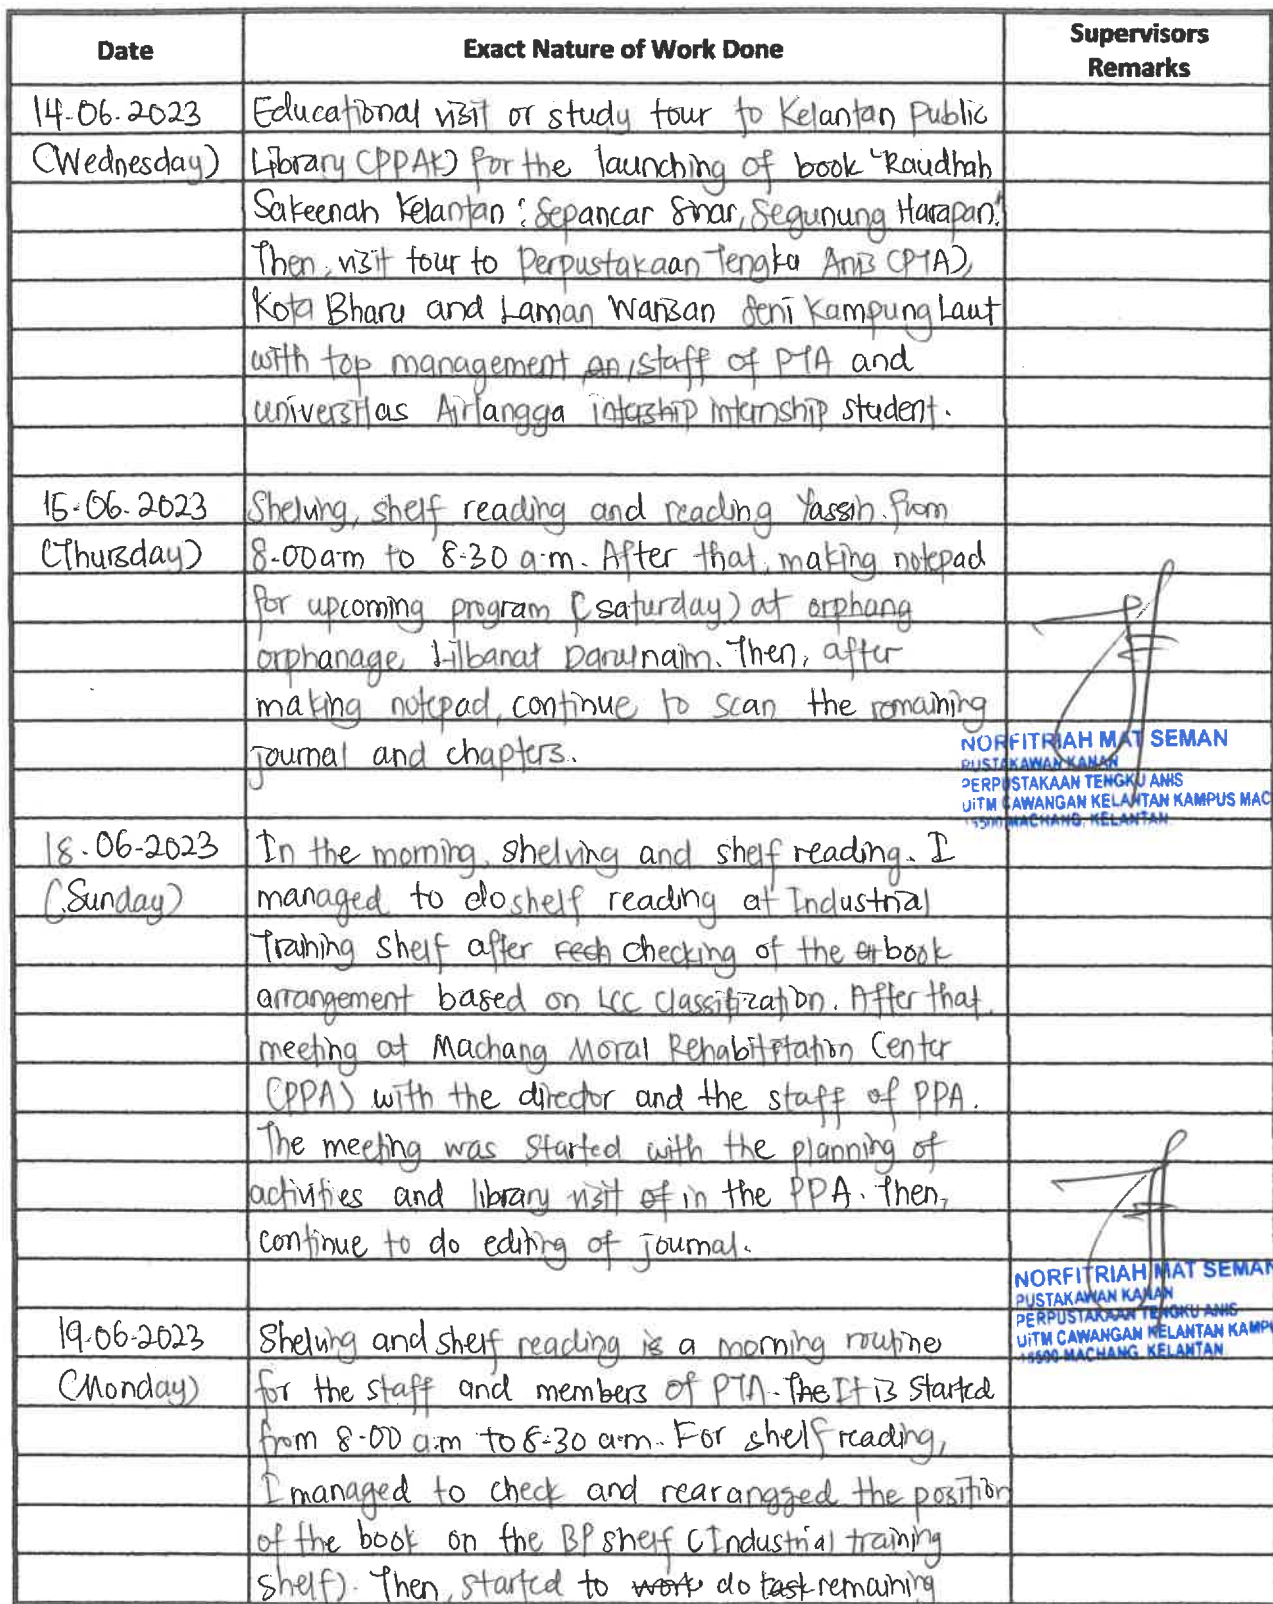 Date Exact Nature of Work Done Supervisors Remarks
14-06-2023 Educational visit or study tour to Kelantan Public
(Wednesday) Library (PPAK) for the launching of book "Raudhah
Sakeenah Kelantan : Sepancar Sinar, Segunung Harapan".
Then, visit tour to Perpustakaan Tengku Anis (PTA),
Kota Bharu and Laman Warisan Seni Kampung Laut
with top management an, staff of PTA and
universitas Airlangga intership internship student.
15-06-2023 Shelving, shelf reading and reading Yassin from
(Thursday) 8.00am to 8.30 a.m. After that, making notepad
for upcoming program (saturday) at orphang
orphanage, Lilbanat Darulnaim. Then, after
making notepad, continue to scan the remaining
journal and chapters.
NORFITRIAH MAT SEMAN
PUSTAKAWAN KANAN
PERPUSTAKAAN TENGKU ANIS
UiTM CAWANGAN KELANTAN KAMPUS MAC
18500 MACHANG, KELANTAN
18-06-2023 In the morning, shelving and shelf reading. I
(Sunday) managed to do shelf reading at Industrial
Training shelf after rech checking of the book
arrangement based on LCC classification. After that,
meeting at Machang Moral Rehabilitation Center
(PPA) with the director and the staff of PPA.
The meeting was started with the planning of
activities and library visit of in the PPA. Then,
continue to do editing of journal.
NORFITRIAH MAT SEMAN
PUSTAKAWAN KANAN
PERPUSTAKAAN TENGKU ANIS
UiTM CAWANGAN KELANTAN KAMPU
18500 MACHANG, KELANTAN
19-06-2023 Shelving and shelf reading is a morning routine
(Monday) for the staff and members of PTA. The It is started
from 8.00 a.m to 8.30 a.m. For shelf reading,
I managed to check and rearangged the position
of the book on the BP shelf (Industrial training
shelf). Then, started to work do task remaining